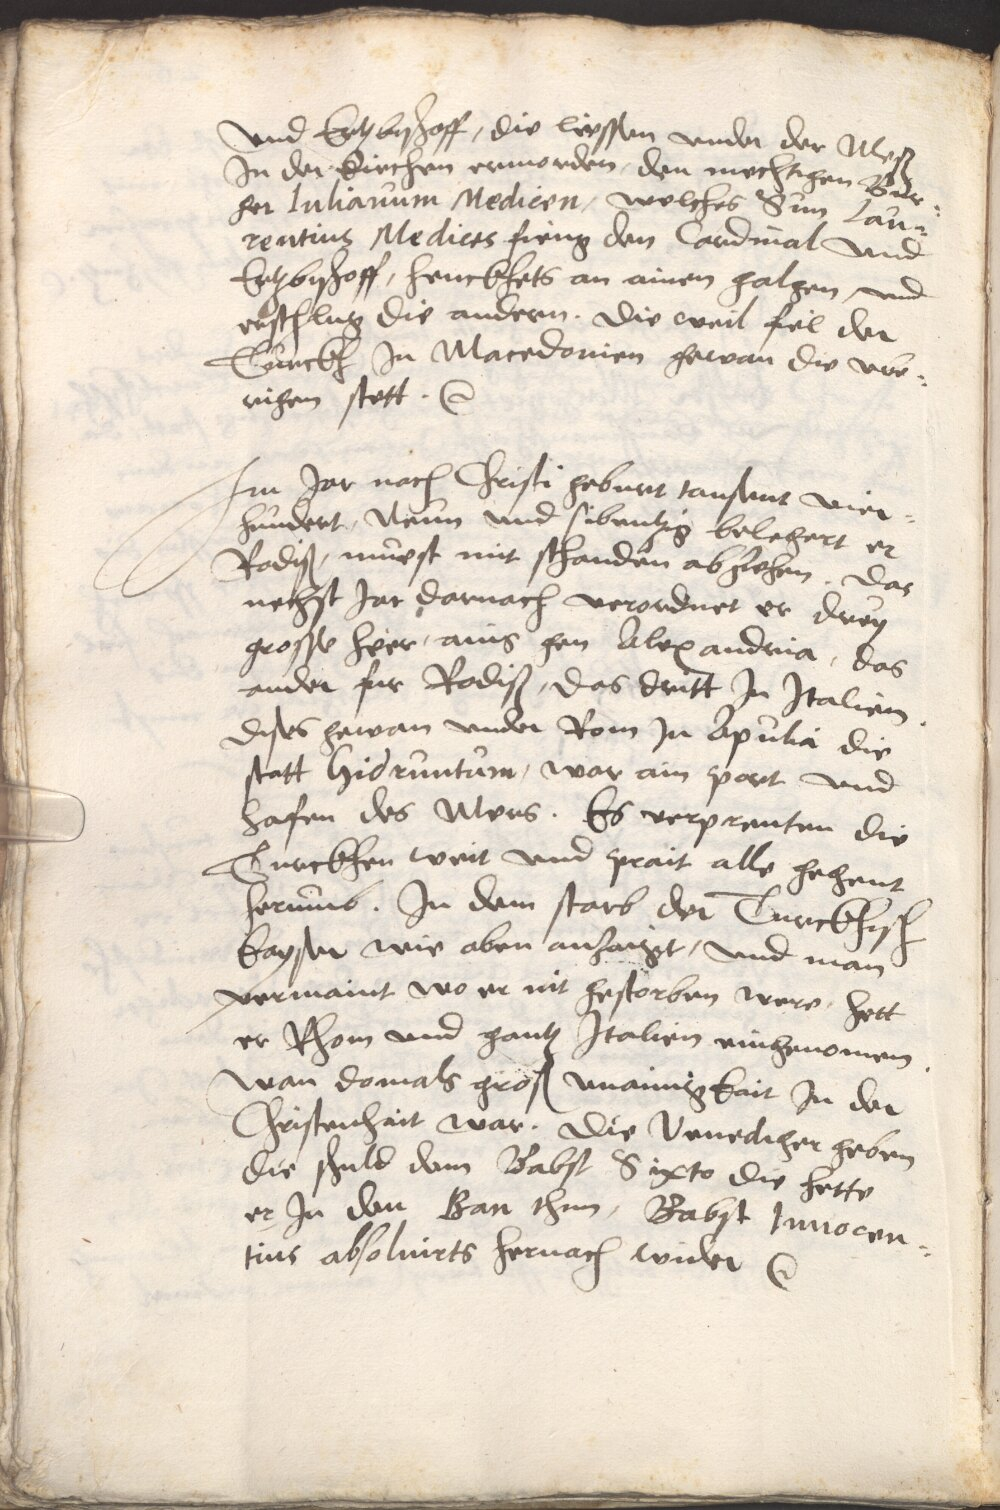 und Ertzbyschoff, die liessen under der Mess
In der kirchen ermorden, den mechtigen Bur-
ger Iulianum Medicen, welches Sun Lau-
rentius Medices fieng den Cardinal und
Ertzbyschoff, henckhets an ainen galgen und
erschlug die andern. Die weil fiel der
Turckh In Macedonien gewan die ube-
rigen stett.
Im Jar nach Christi geburt tausent vier-
hundert, Neun und sibentzig belegert er
Rodiß, muest mit schanden abziehen. Das
nechst Jar darnach verordnet er drey
grosse heer, ains gen Alexandria, das
ander fur Rodiß, das dritt In Italien.
dises gewan under Rom In Apulia die
statt Hidruntum, war ain port und
hafen des Mers. Es verprenten die
Turckhen weit und prait alle gegent
herumb. In dem starb der Turckhysch
kayser wie oben anzaigt, und man
vermaint wo er nit gestorben were, hett
er Rhom und gantz Italien eingenomen.
wan domals groß unainigkait In der
Christenhait war. Die Venediger geben
die schuld dem Babst Sixto die hette
er In den Ban thun, Babst Innocen-
tius absolvirts hernach wider